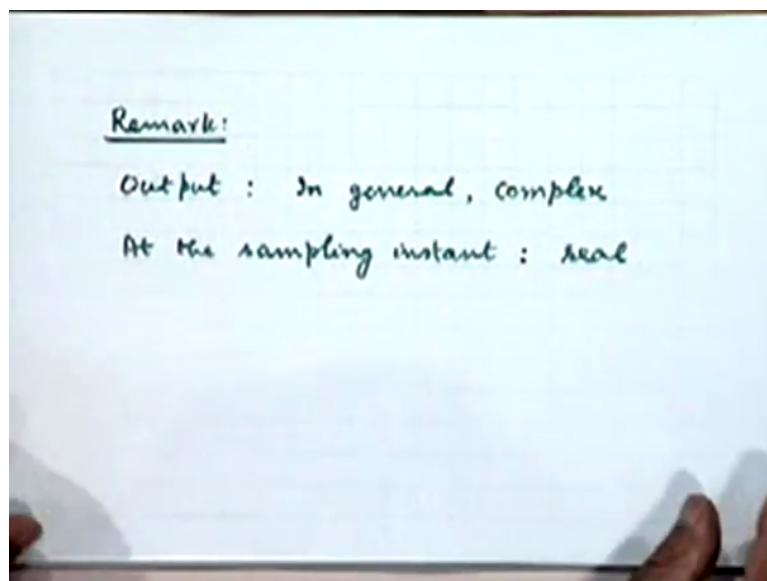 Remark:
Output : In general, complex
At the sampling instant : real